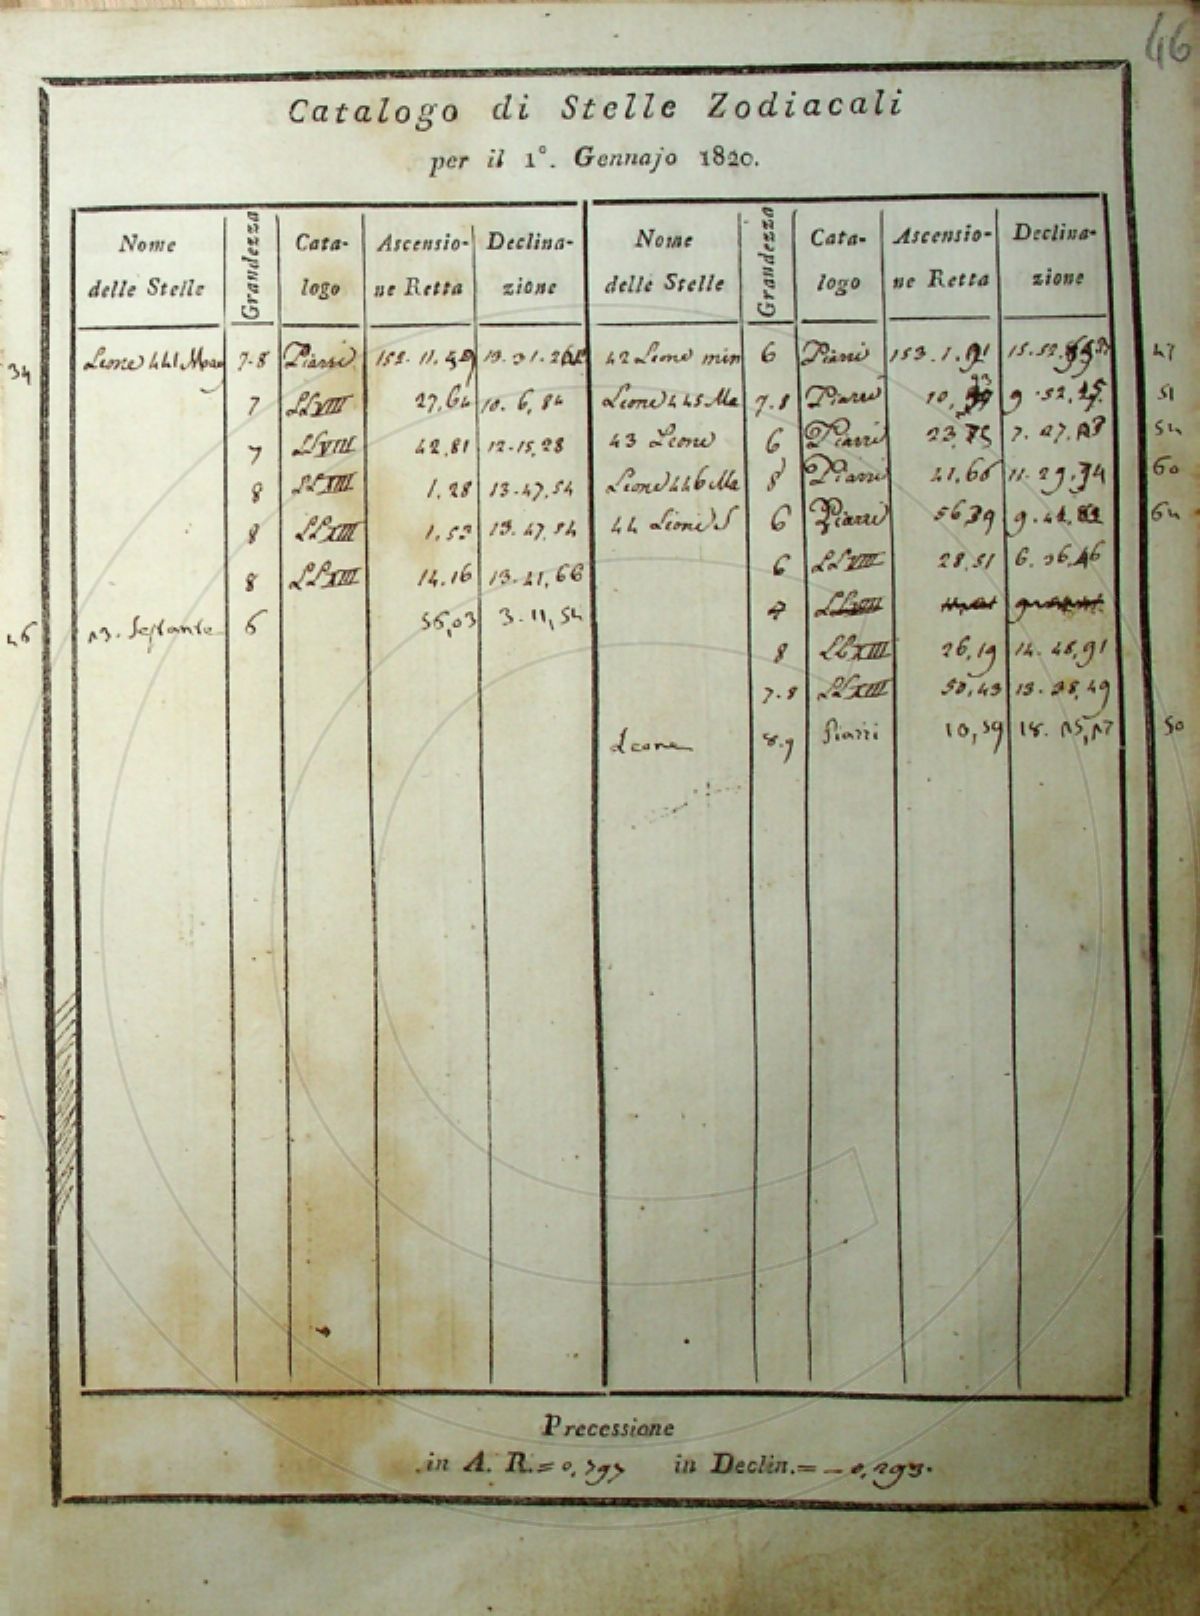 46
Catalogo di Stelle Zodiacali
per il 1°. Gennajo 1820.
Nome delle Stelle Grandezza Cata-logo Ascensio-ne Retta Declina-zione Nome delle Stelle Grandezza Cata-logo Ascensio-ne Retta Declina-zione
34 Leone 441 7.8 Piazzi 152. 11. 13. 31. 42 Leone min 6 Piazzi 153. 1. 15. 52. 47
7 LLVIII 27,64 10. 6, 84 Leone 445 Ma 7.8 Piazzi 10, 9. 52, 51
7 LLVIII 42,81 12. 15, 28 43 Leone 6 Piazzi 23, 7. 27,
8 LLXIII 1.28 13. 47, 54 Leone 446 Ma 8 Piazzi 41,66 11. 29, 60
8 LLXIII 1.53 13. 47, 54 44 Leone 6 Piazzi 56 9.
8 LLXIII 14.16 13. 41, 66 6 LLVIII 28,51 6. 36,
46 Sestante 6 56,03 3. 11, 54
8 LLXIII 26,19 14. 48, 91
7.8 LLXIII 50,43 13. 38, 49
Leone 8.9 Piazzi 10,59 18. 50
Precessione
in A. R. = 0,797 in Declin. = – 0,293.